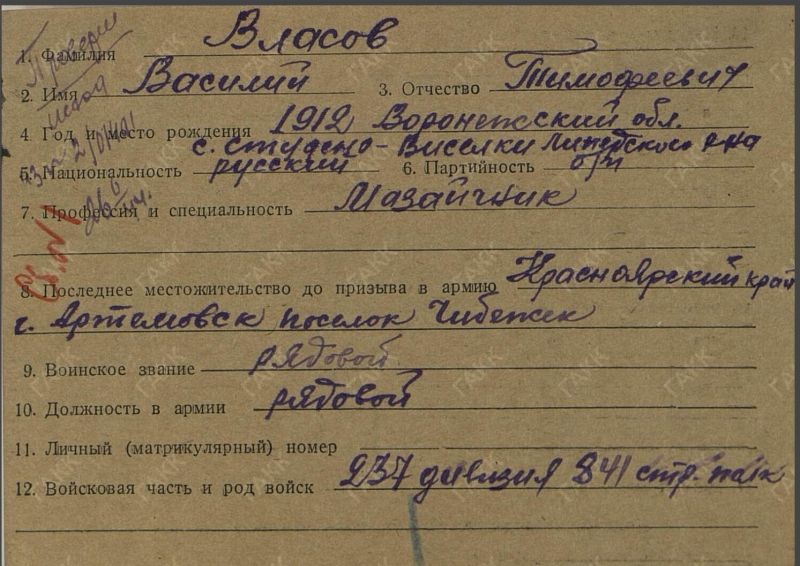 1. Фамилия Власов
2. Имя Василий 3. Отчество Тимофеевич
4 Год и место рождения 1912 Воронежский обл.
с. Студено-Виселки Липецкого р-на
5. Национальность русский 6. Партийность б/п
7. Профессия и специальность Мазайчник
8. Последнее местожительство до призыва в армию Красноярский край
г. Артемовск поселок Чибежек
9. Воинское звание рядовой
10. Должность в армии рядовой
11. Личный (матрикулярный) номер
12. Войсковая часть и род войск 237 дивизия 841 стр. полк